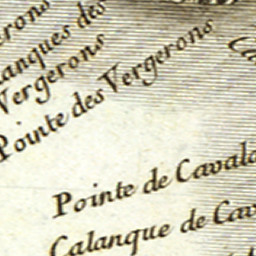 erons
anques des
Vergerons
Pointe des Vergerons
Ca
Pointe de Cavala
Calanque de Cav